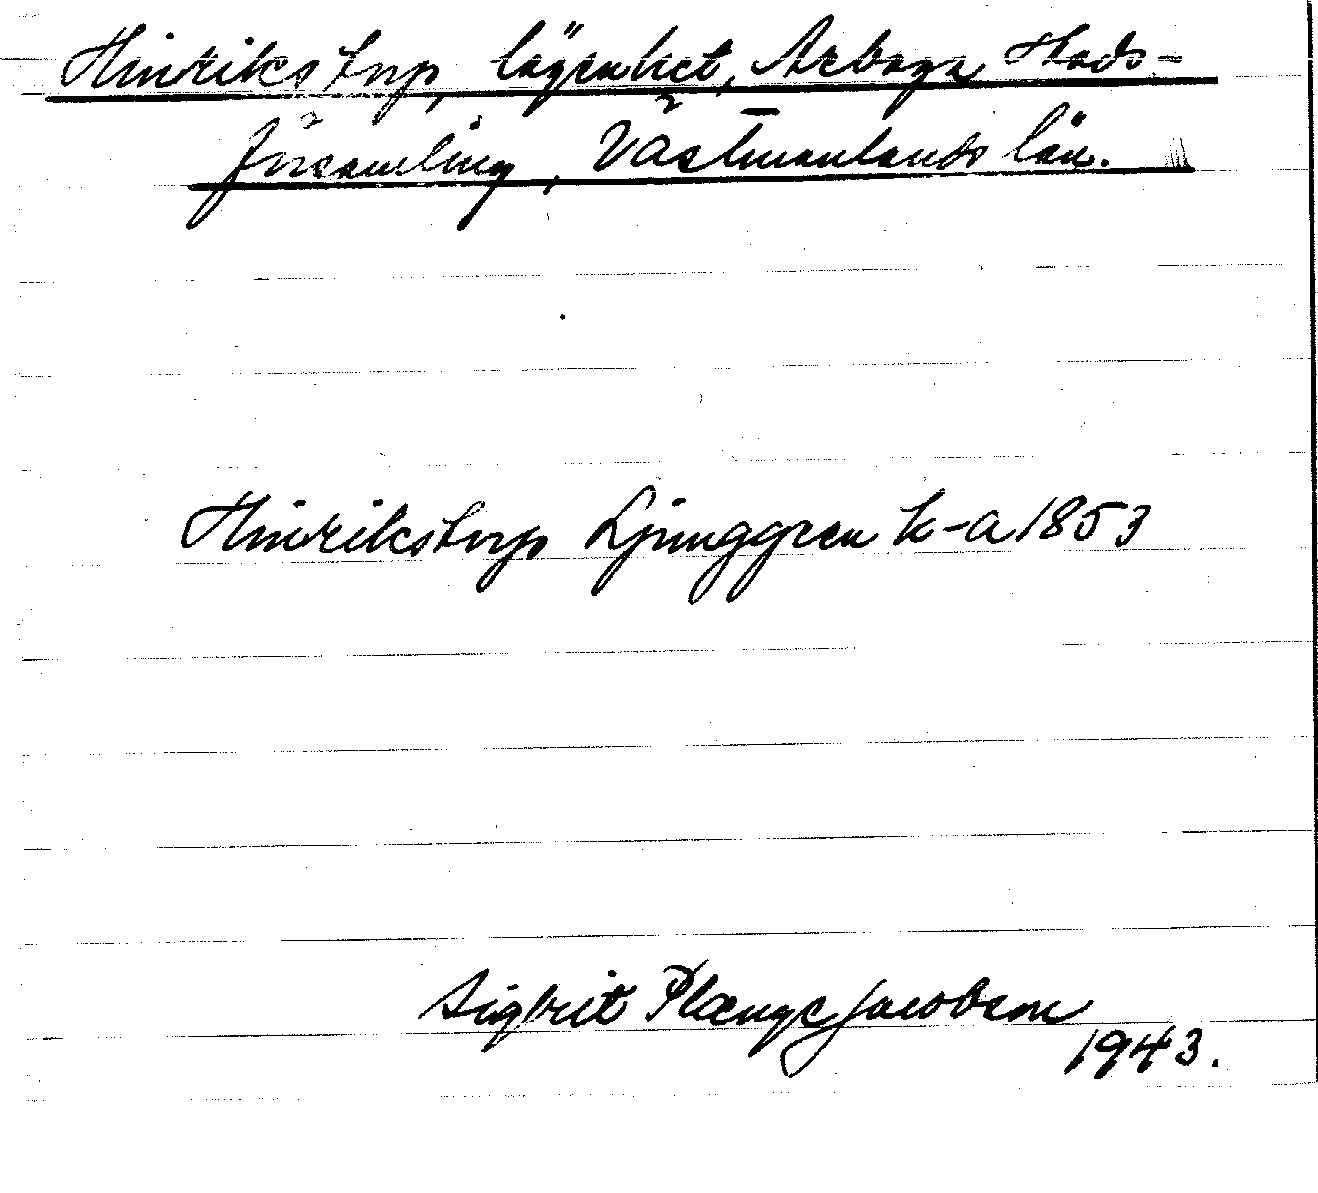 Hinrikstorp, lägenhet, Arboga Stads-
församling, Västmanlands län.
Hinrikstorp Ljunggren k-a 1853
Sigbrit Plænge Jacobson
1943.